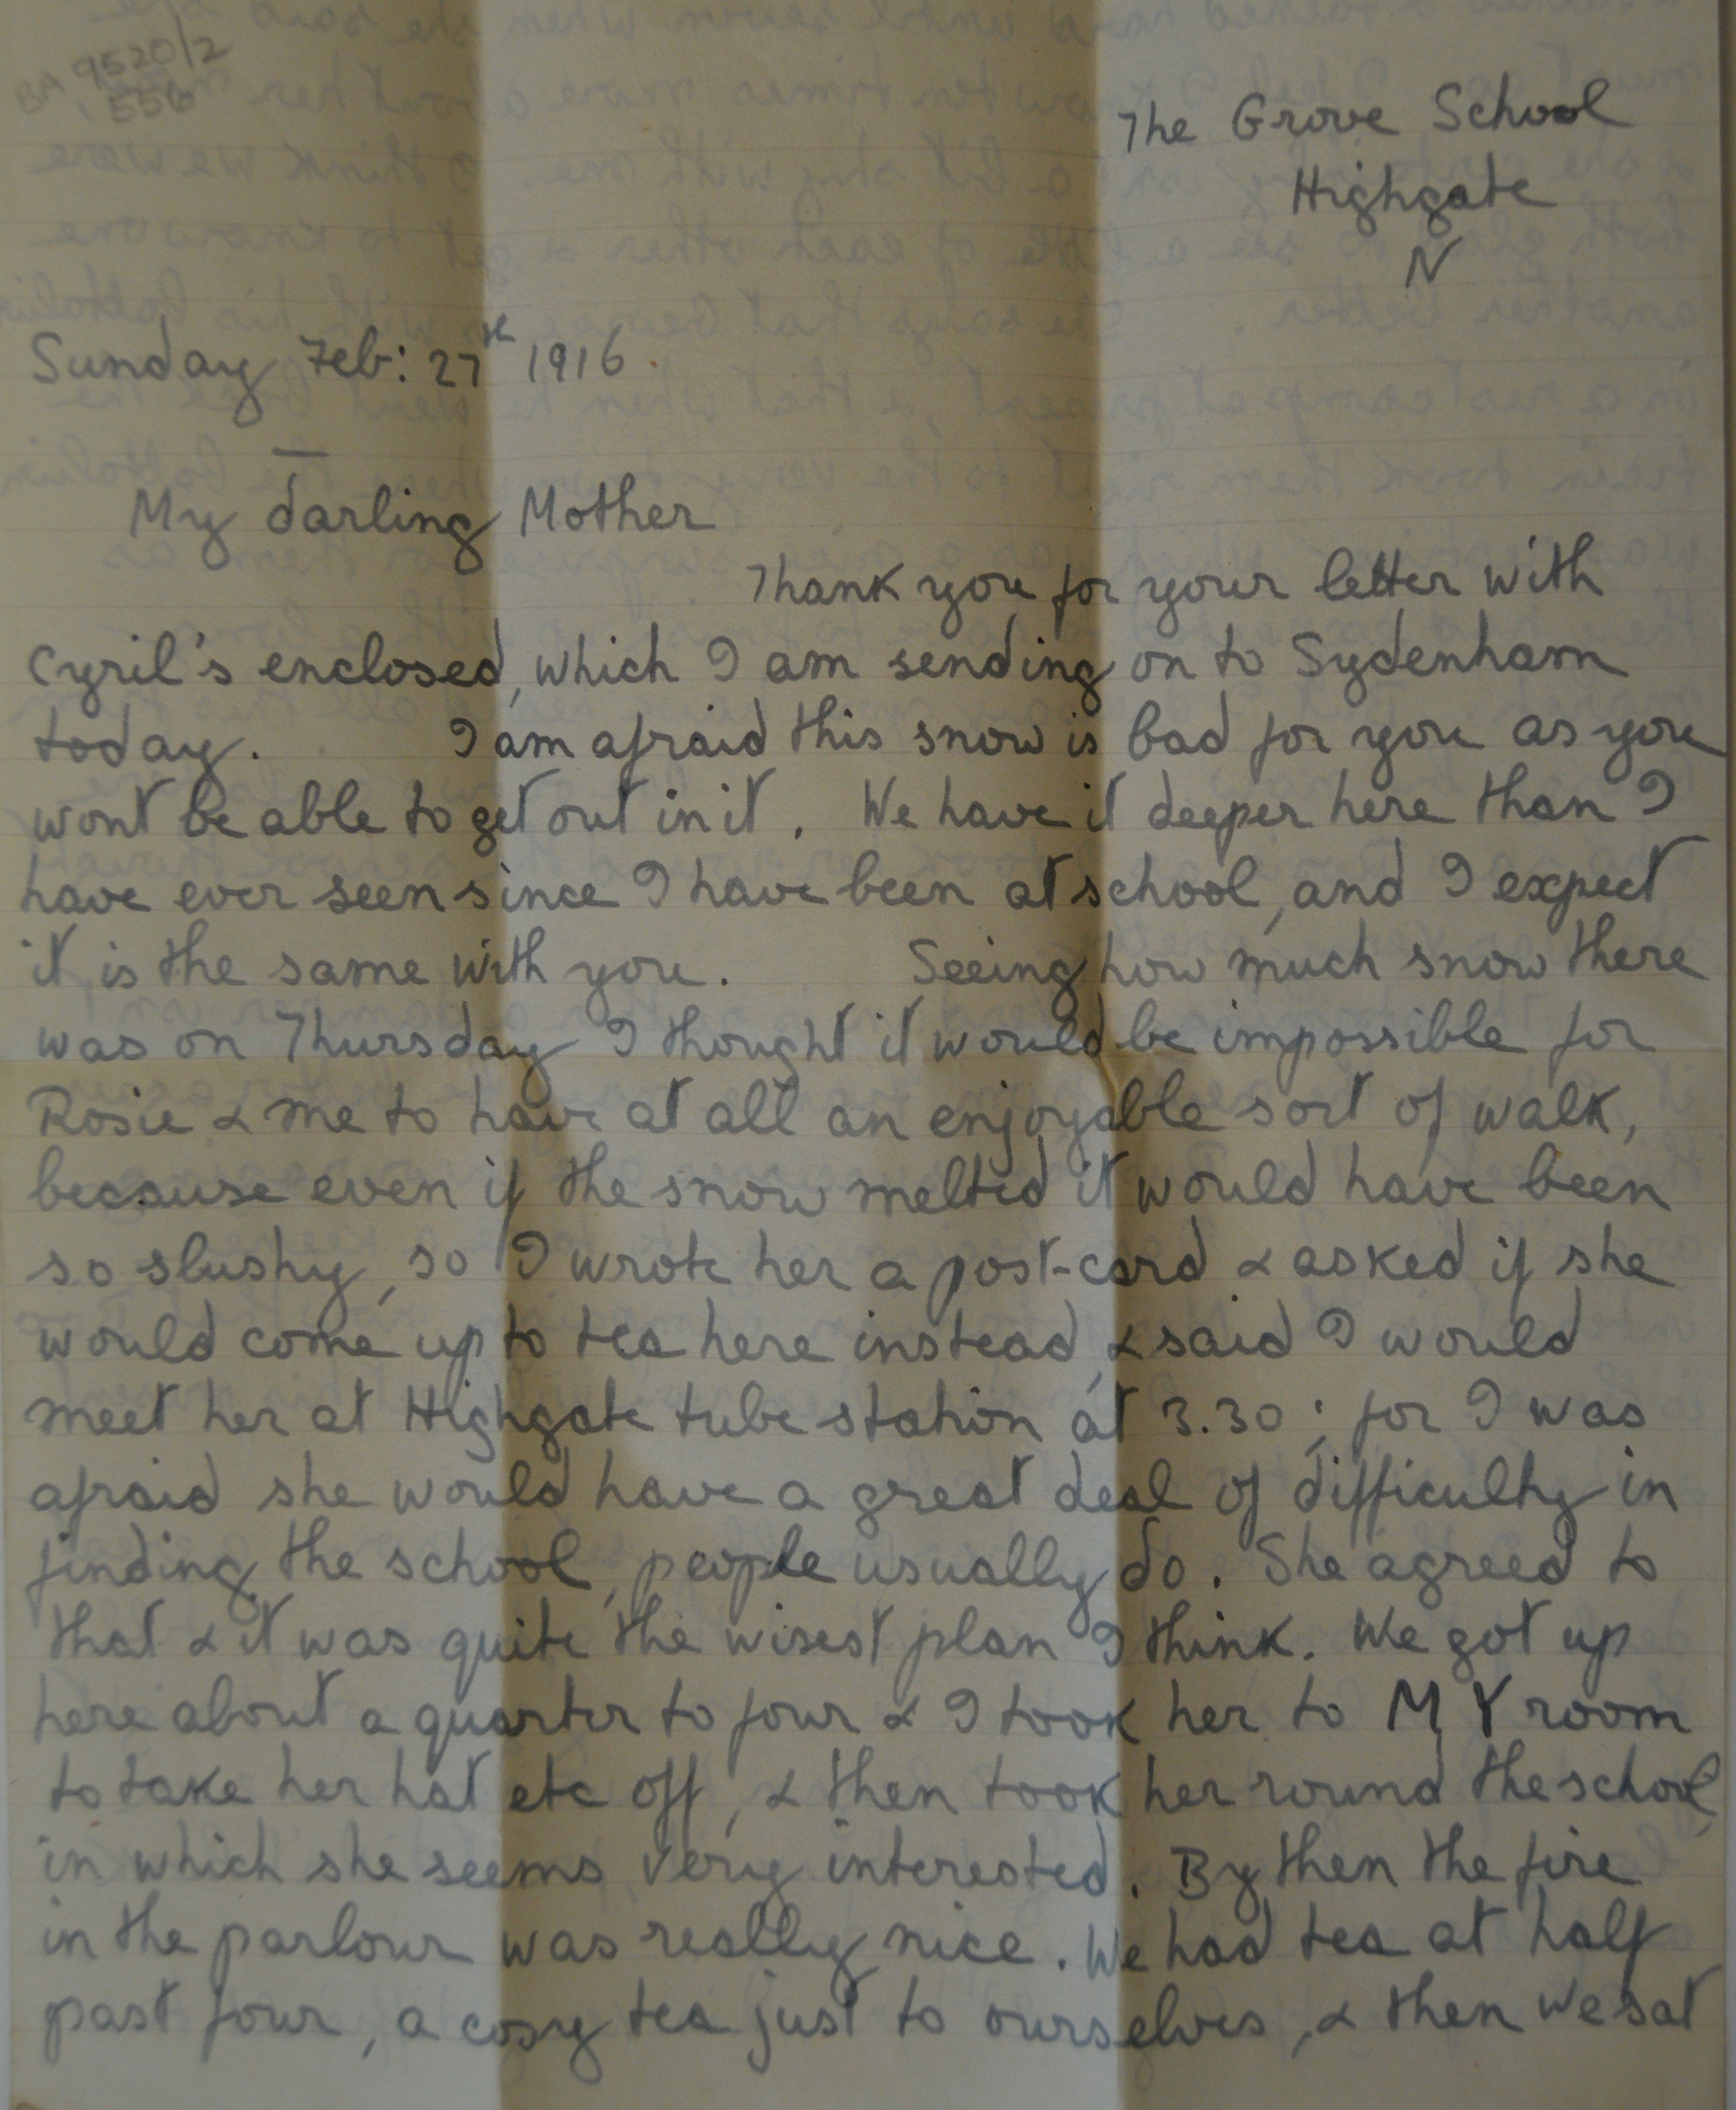 BA 9520/2
556
The Grove School
Highgate
N
Sunday Feb: 27th 1916
My darling Mother
Thank you for your letter with
Cyril's enclosed, which I am sending on to Sydenham
today. I am afraid this snow is bad for you as you
wont be able to get out in it. We have it deeper here than I
have ever seen since I have been at school, and I expect
it is the same with you. Seeing how much snow there
was on Thursday I thought it would be impossible for
Rosie & me to have at all an enjoyable sort of walk,
because even if the snow melted it would have been
so slushy, so I wrote her a post-card & asked if she
would come up to tea here instead, & said I would
meet her at Highgate tube station at 3.30; for I was
afraid she would have a great deal of difficulty in
finding the school, people usually do. She agreed to
that & it was quite the wisest plan I think. We got up
here about a quarter to four & I took her to MY room
to take her hat etc off, & then took her round the school,
in which she seems very interested. By then the fire
in the parlour was really nice. We had tea at half
past four, a cosy tea just to ourselves, & then we sat